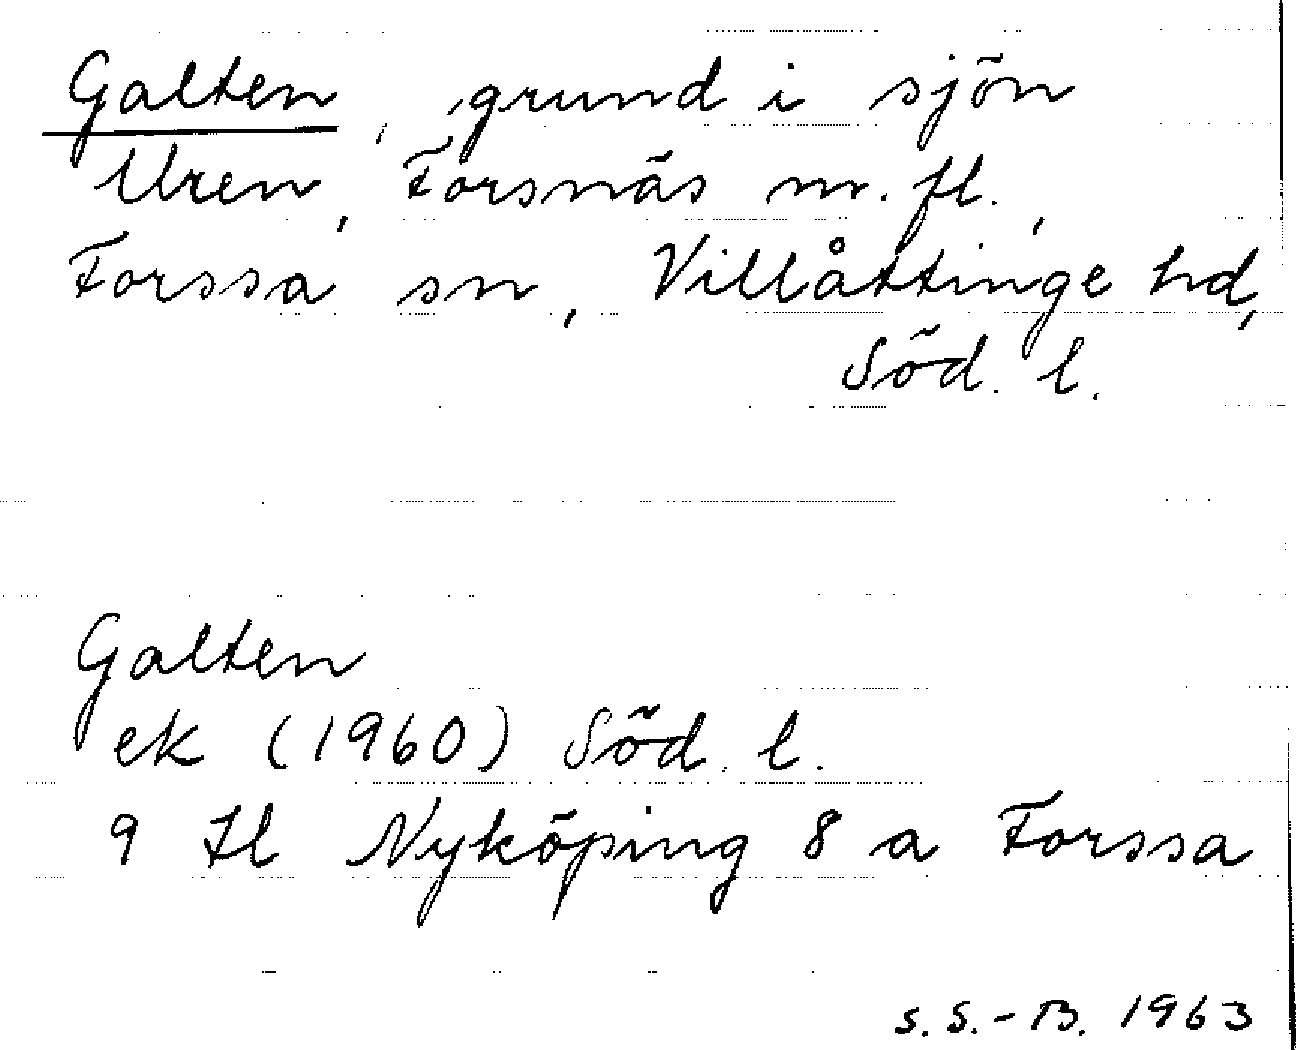 Galten, grund i sjön
Uren, Forsnäs m. fl.,
Forssa sn, Villåttinge hd,
Söd. l.
Galten
ek (1960) Söd. l.
9 Il Nyköping 8 a Forssa
S. S.-B. 1963